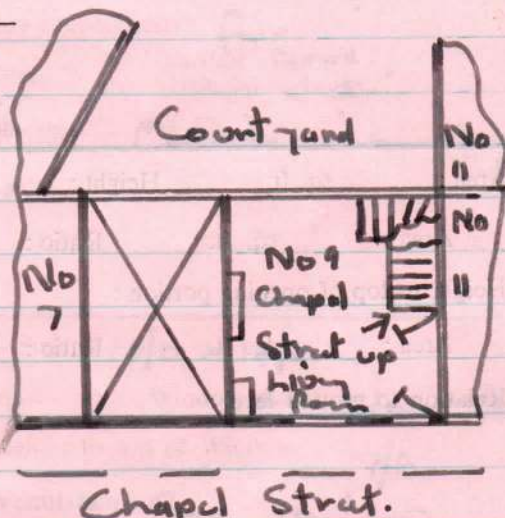 Courtyard
No
11
Height :
No
11
No
7
No 9
Chapel
Street up
Living
Room
Chapel Street.